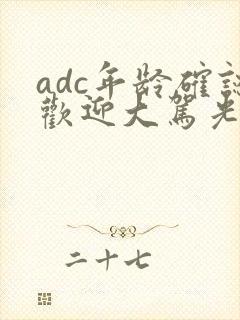 adc年龄確認
歡迎大駕光
二十七